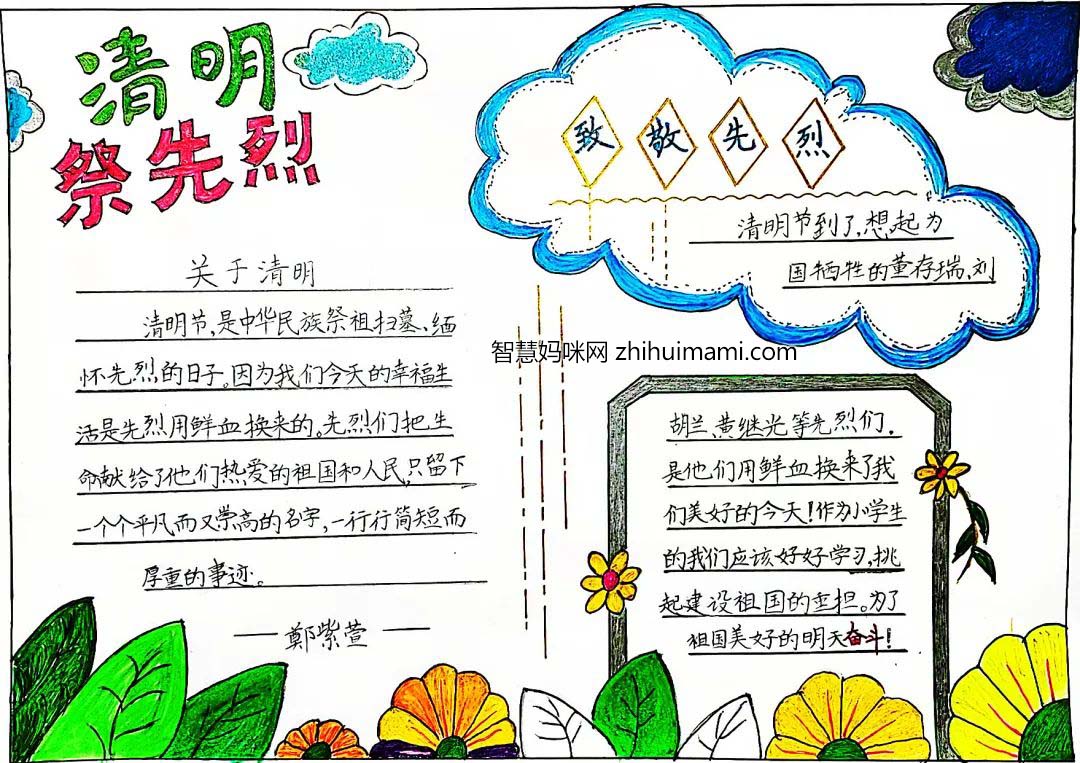 清明
祭先烈
关于清明
清明节,是中华民族祭祖扫墓、缅
怀先烈的日子。因为我们今天的幸福生
活是先烈用鲜血换来的。先烈们把生
命献给了他们热爱的祖国和人民,只留下
一个个平凡而又崇高的名字,一行行简短而
厚重的事迹。
——鄭紫萱——
致敬先烈
清明节到了,想起为
国牺牲的董存瑞、刘
智慧妈咪网 zhihuimami.com
胡兰、黄继光等先烈们,
是他们用鲜血换来了我
们美好的今天!作为小学生
的我们应该好好学习,挑
起建设祖国的重担。为了
祖国美好的明天奋斗!